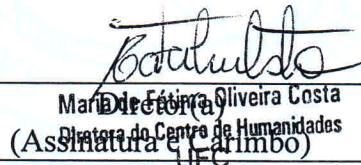 Maria de Fátima Oliveira Costa
Diretor(a)
Diretora do Centro de Humanidades
(Assinatura e Carimbo)
UFC